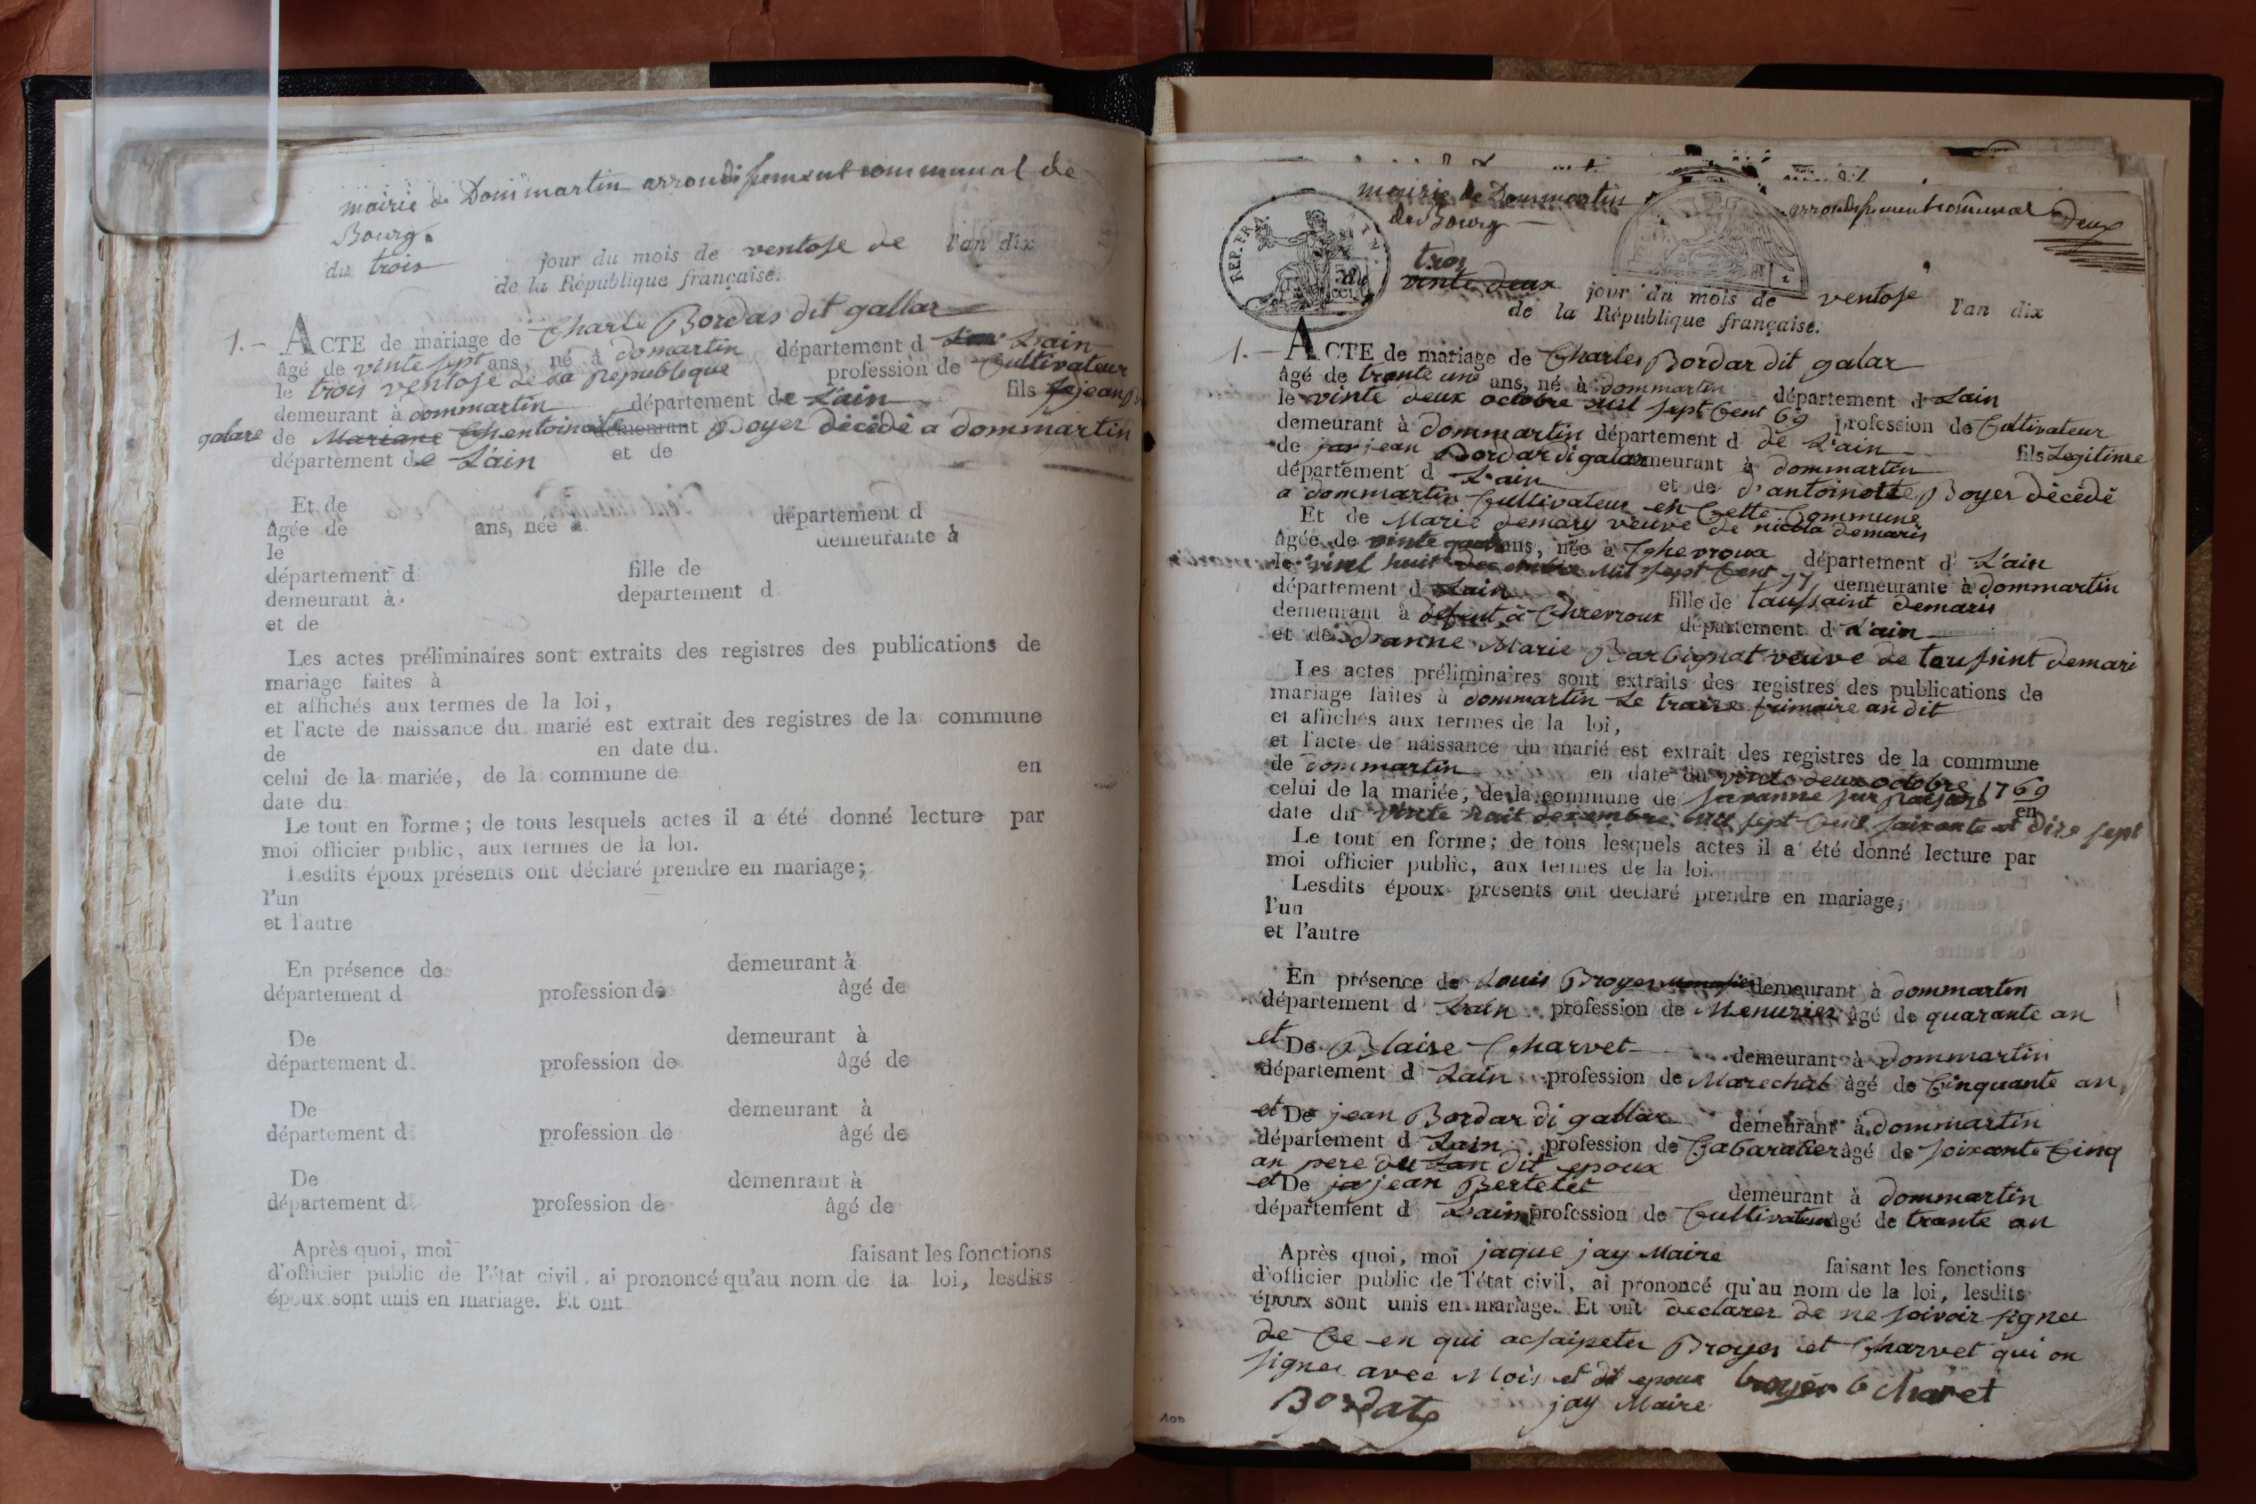 mairie de Dommartin arrondissement communal de
Bourg.
du trois jour du mois de ventose de l'an dix
de la République française.
1. – ACTE de mariage de Charle Bordas dit gallar
âgé de vinte sept ans, né à domartin département d Lain
le trois ventose de la republique profession de Cultivateur
demeurant à dommartin département de Lain fils jean
galare de Mariane antoinate demeurant Boyer décédé a dommartin
département de L'ain et de
Et de
âgée de ans, née à département d
le demeurante à
département d fille de
demeurant à département d
et de
Les actes préliminaires sont extraits des registres des publications de
mariage faites à
et affichés aux termes de la loi,
et l'acte de naissance du marié est extrait des registres de la commune
de en date du
celui de la mariée, de la commune de en
date du
Le tout en forme; de tous lesquels actes il a été donné lecture par
moi officier public, aux termes de la loi.
Lesdits époux présents ont déclaré prendre en mariage;
l'un
et l'autre
En présence de demeurant à
département d profession de âgé de
De demeurant à
département d profession de âgé de
De demeurant à
département d profession de âgé de
De demeurant à
département d profession de âgé de
Après quoi, moi faisant les fonctions
d'officier public de l'état civil, ai prononcé qu'au nom de la loi, lesdits
époux sont unis en mariage. Et ont
mairie de Dommartin arrondissement communal Deux
de Bourg
REP. FRA.
trois
vinte deux jour du mois de ventose l'an dix
de la République française.
1. – ACTE de mariage de Charles Bordar dit galar
âgé de trante une ans, né à dommartin département d Lain
le vinte deux octobre mil sept Cent 69 profession de Cultivateur
demeurant à dommartin département d de L'ain fils Legitime
de jean Bordar di galar demeurant à dommartin
département d L'ain et de d'antoinette Boyer décédé
a dommartin Cultivateur en Cette Commune
Et de Marie demary veuve de nicola demaris
âgée de vinte quatre ans, née à Chevroux département d L'ain
le vint huit decembre mil sept Cent 77 demeurante à dommartin
département d Lain fille de taussaint demaris
demeurant à defunt à Chevroux département d L'ain
et de Marie Barbignat veuve de tousint demari
Les actes préliminaires sont extraits des registres des publications de
mariage faites à dommartin Le traize frimaire an dit
et affichés aux termes de la loi,
et l'acte de naissance du marié est extrait des registres de la commune
de Dommartin en date du vinte deux octobre 1769
celui de la mariée, de la commune de en
date du vinte huit decembre mil sept Cent soixante et dire sept
Le tout en forme; de tous lesquels actes il a été donné lecture par
moi officier public, aux termes de la loi.
Lesdits époux présents ont déclaré prendre en mariage;
l'un
et l'autre
En présence de Louis Broyer demeurant à dommartin
département d Lain profession de Menuzier âgé de quarante an
et De Blaise Charvet demeurant à dommartin
département d Lain profession de Marechal âgé de Cinquante an,
et De jean Bordar di gallar demeurant à dommartin
département d Lain profession de Cabaratier âgé de soixante Cinq
an pere du dit epoux
et De jean Bertetet demeurant à dommartin
département d Lain profession de Cultivateur âgé de trante an
Après quoi, moi jaque jay Maire faisant les fonctions
d'officier public de l'état civil, ai prononcé qu'au nom de la loi, lesdits
époux sont unis en mariage. Et ont declarer de ne soivoir signer
de Ce en qui Broyer et Charvet qui on
signer avec Mois et dit epoux broyer b Charvet
Bordat jay Maire
100